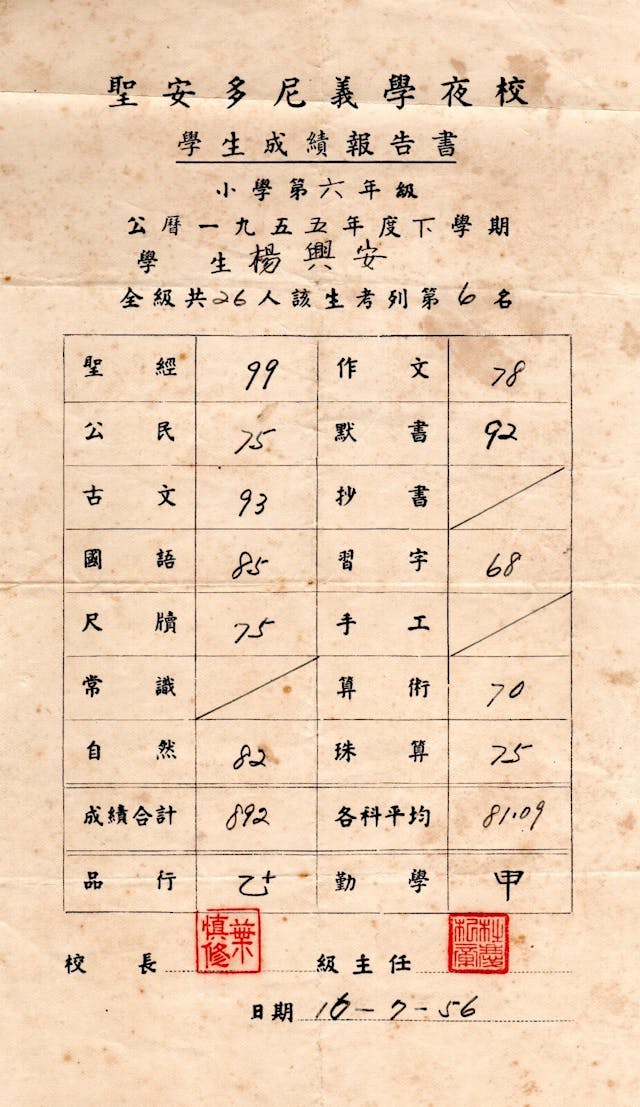 聖安多尼義學夜校
學生成績報告書
小學第六年級
公曆一九五五年度下學期
學生楊興安
全級共26人該生考列第6名
聖經 99 作文 78
公民 75 默書 92
古文 93 抄書
國語 85 習字 68
尺牘 75 手工
常識 算術 70
自然 82 珠算 75
成績合計 892 各科平均 81.09
品行 乙+ 勤學 甲
校長 葉慎修 級主任
日期 16-7-56